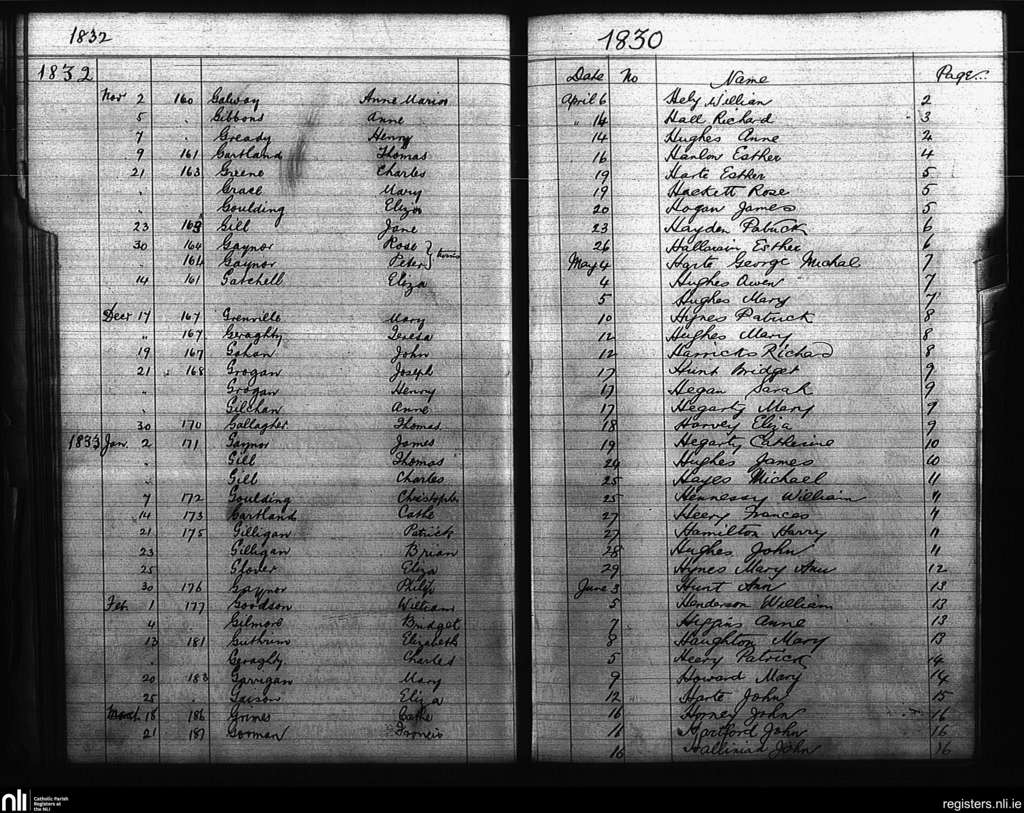 1832
1832
Nov 2 160 Galway Anne Maria
5 " Gibbons Anne
7 " Gready Henry
9 161 Gartland Thomas
21 163 Greene Charles
" Grace Mary
" Goulding Eliza
23 163 Gill Jane
30 164 Gaynor Rose
" 164 Gaynor Peter } twins
14 161 Gatchell Eliza
Decr 17 167 Grenville Mary
" 167 Geraghty Teresa
19 167 Gahan John
21 168 Grogan Joseph
" Grogan Henry
" Gilchan Anne
30 170 Gallagher Thomas
1833 Jan. 2 171 Gaynor James
" Gill Thomas
" Gill Charles
7 172 Goulding Christophr
14 173 Gartland Cathe
21 175 Gilligan Patrick
23 Gilligan Brian
25 Glover Eliza
30 176 Gaynor Philip
Feb 1 177 Goodson William
4 Gilmore Bridget
13 181 Guthrim Elizabeth
" Geraghty Charles
20 183 Garrigan Mary
25 " Eliza
March 18 186 Grimes Cathe
21 187 Gorman Francis
1830
Date No Name Page
April 6 Hely William 2
" 14 Hall Richard 3
14 Hughes Anne 2
16 Hanlon Esther 4
19 Harte Esther 5
19 Hackett Rose 5
20 Hogan James 5
23 Hayden Patrick 6
26 Hallavain Esther 6
May 4 Harte George Michal 7
4 Hughes Owen 7
5 Hughes Mary 7
10 Hynes Patrick 8
12 Hughes Mary 8
12 Harricks Richard 8
17 Hunt Bridget 9
17 Hegan Sarah 9
17 Hegarty Mary 9
18 Harvey Eliza 9
19 Hegarty Catherine 10
24 Hughes James 10
25 Hayes Michael 11
25 Hennessy William 11
27 Heery Frances 11
27 Hamilton Harry 11
28 Hughes John 11
29 Hynes Mary Ann 12
June 3 Hunt Ann 13
5 Henderson William 13
7 Higgins Anne 13
8 Haughton Mary 13
5 Heery Patrick 14
9 Howard Mary 14
12 Harte John 15
16 Horney John 16
16 Hartford John 16
16 Hallinan John 16
nli Catholic Parish
Registers at
the NLI
registers.nli.ie